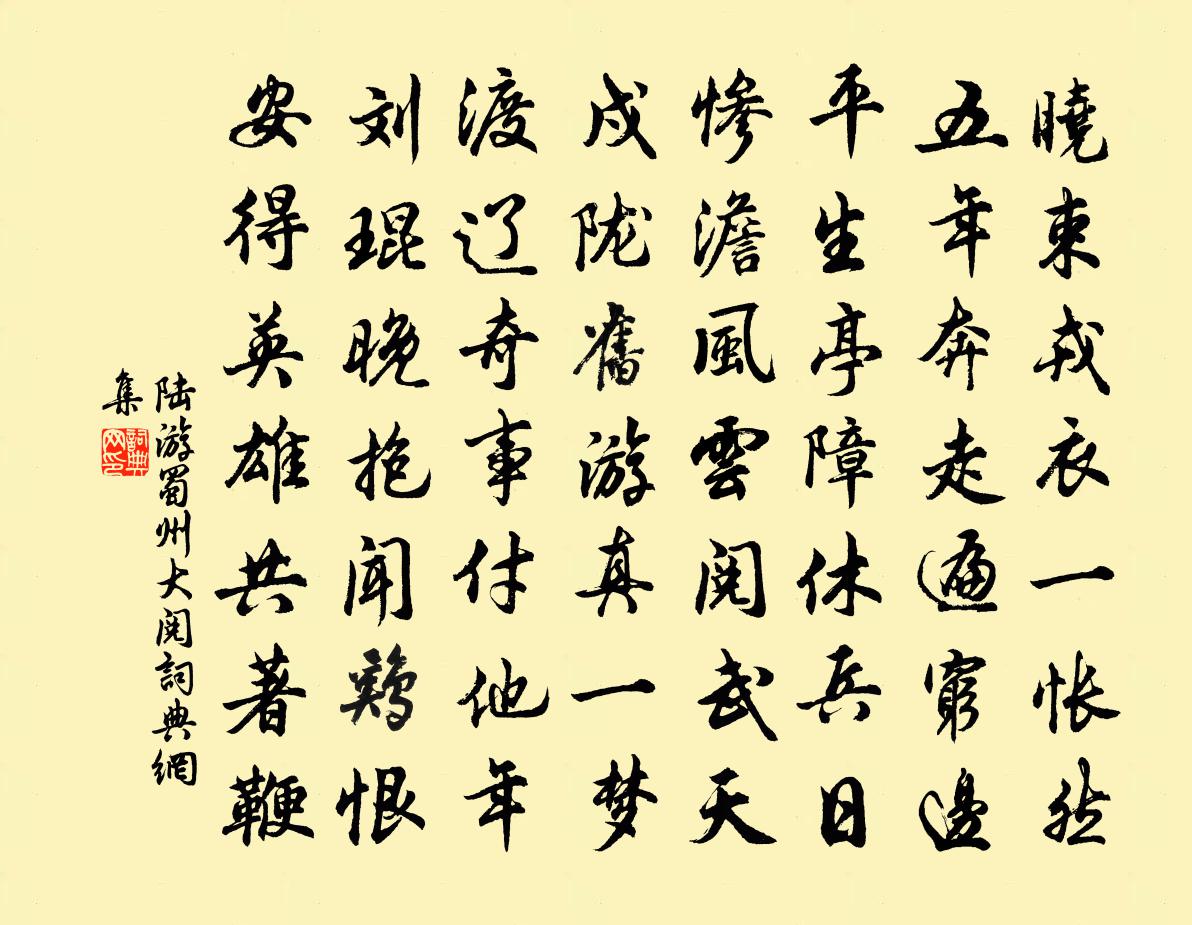 曉束戎衣一悵然
五年奔走遍窮邊
平生亭障休兵日
慘澹風雲閱武天
戍陇舊游真一梦
渡辽奇事付他年
刘琨晚抱闻鷄恨
安得英雄共著鞭
陆游蜀州大阅詞典網
集
詞典网印